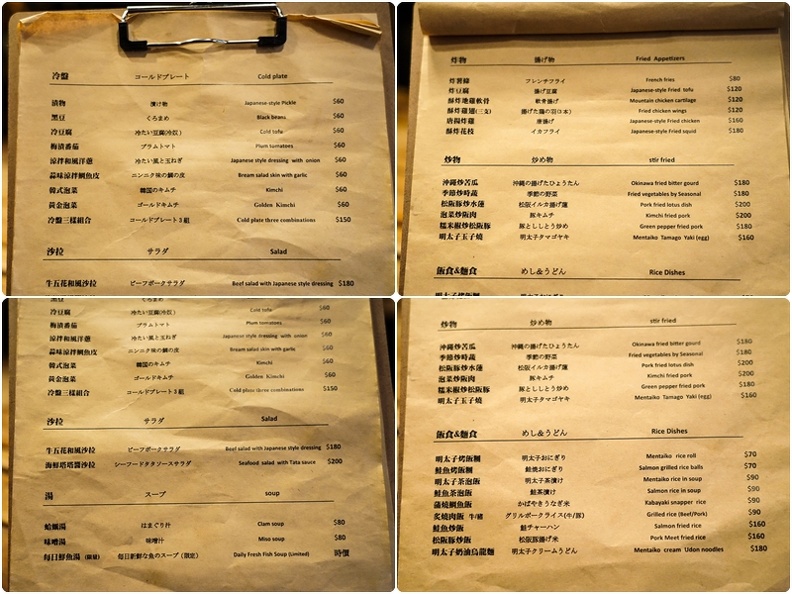 冷盤 コールドプレート Cold plate
漬物 漬け物 Japanese-style Pickle $60
黑豆 くろまめ Black beans $60
冷豆腐 冷たい豆腐(冷奴) Cold tofu $60
梅漬番茄 プラムトマト Plum tomatoes $60
涼拌和風洋蔥 冷たい風と玉ねぎ Japanese style dressing with onion $60
蒜味涼拌鯛魚皮 ニンニク味の鯛の皮 Bream salad skin with garlic $60
韓式泡菜 韓国のキムチ Kimchi $60
黃金泡菜 ゴールドキムチ Golden Kimchi $60
冷盤三樣組合 コールドプレート3組 Cold plate three combinations $150
沙拉 サラダ Salad
牛五花和風沙拉 ビーフポークサラダ Beef salad with Japanese style dressing $180
炸物 揚げ物 Fried Appetizers
炸薯條 フレンチフライ French fries $80
炸豆腐 揚げ豆腐 Japanese-style Fried tofu $120
酥炸地雞軟骨 軟骨揚げ Mountain chicken cartilage $120
酥炸雞翅(三支) 揚げた鶏の羽(3本) Fried chicken wings $120
唐揚炸雞 唐揚げ Japanese-style Fried chicken $160
酥炸花枝 イカフライ Japanese-style Fried squid $180
炒物 炒め物 stir fried
沖繩炒苦瓜 沖縄の揚げたひょうたん Okinawa fried bitter gourd $180
季節炒時蔬 季節の野菜 Fried vegetables by Seasonal $180
松阪豚炒水蓮 松阪イルカ揚げ蓮 Pork fried lotus dish $200
泡菜炒阪肉 豚キムチ Kimchi fried pork $200
糯米椒炒松阪豚 豚とししとう炒め Green pepper fried pork $180
明太子玉子燒 明太子タマゴヤキ Mentaiko Tamago Yaki (egg) $160
飯食&麵食 めし&うどん Rice Dishes
黑豆 くろまめ
冷豆腐 冷たい豆腐(冷奴) Cold tofu $60
梅漬番茄 プラムトマト Plum tomatoes $60
涼拌和風洋蔥 冷たい風と玉ねぎ Japanese style dressing with onion $60
蒜味涼拌鯛魚皮 ニンニク味の鯛の皮 Bream salad skin with garlic $60
韓式泡菜 韓国のキムチ Kimchi $60
黃金泡菜 ゴールドキムチ Golden Kimchi $60
冷盤三樣組合 コールドプレート3組 Cold plate three combinations $150
沙拉 サラダ Salad
牛五花和風沙拉 ビーフポークサラダ Beef salad with Japanese style dressing $180
海鮮塔塔醬沙拉 シーフードタタソースサラダ Seafood salad with Tata sauce $200
湯 スープ soup
蛤蠣湯 はまぐり汁 Clam soup $80
味噌湯 味噌汁 Miso soup $80
每日鮮魚湯 (限量) 毎日新鮮な魚のスープ (限定) Daily Fresh Fish Soup (Limited) 時價
炒物 炒め物 stir fried
沖繩炒苦瓜 沖縄の揚げたひょうたん Okinawa fried bitter gourd $180
季節炒時蔬 季節の野菜 Fried vegetables by Seasonal $180
松阪豚炒水蓮 松阪イルカ揚げ蓮 Pork fried lotus dish $200
泡菜炒阪肉 豚キムチ Kimchi fried pork $200
糯米椒炒松阪豚 豚とししとう炒め Green pepper fried pork $180
明太子玉子燒 明太子タマゴヤキ Mentaiko Tamago Yaki (egg) $160
飯食&麵食 めし&うどん Rice Dishes
明太子烤飯糰 明太子おにぎり Mentaiko rice roll $70
鮭魚烤飯糰 鮭焼おにぎり Salmon grilled rice balls $70
明太子茶泡飯 明太子茶漬け Mentaiko rice in soup $90
鮭魚茶泡飯 鮭茶漬け Salmon rice in soup $90
蒲燒鯛魚飯 かばやきうなぎ米 Kabayaki snapper rice $90
炙燒烤肉飯 牛/豬 グリルポークライス(牛/豚) Grilled rice (Beef/Pork) $90
鮭魚炒飯 鮭チャーハン Salmon fried rice $160
松阪豚炒飯 松阪豚揚げ米 Pork Meet fried rice $160
明太子奶油烏龍麵 明太子クリームうどん Mentaiko cream Udon noodles $180